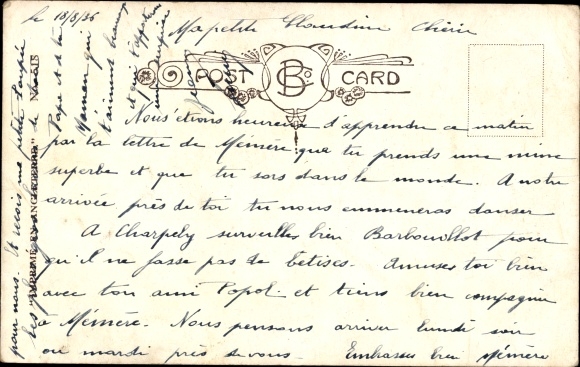 le 18/8/36
Ma petite Claudine Chérie
POST CARD
B Co
Nous étions heureux d'apprendre ce matin
par la lettre de Mémère que tu prends une mine
superbe et que tu sors dans le monde. A notre
arrivée près de toi tu nous emmeneras danser
A Charpeby surveilles bien Barbouillot pour
qu'il ne fasse pas de betises. Amuses toi bien
avec ton ami Popol et tiens bien compagnie
à Mémère. Nous pensons arriver lundi soir
ou mardi près de vous. Embrasses bien Mémère
pour nous. Et reçois une petite Poupée
les de
Papa et de ta
Maman qui
t'aiment beaucoup
et qui t'apportera
une poupée
"IMPRIMÉ EN ANGLETERRE"